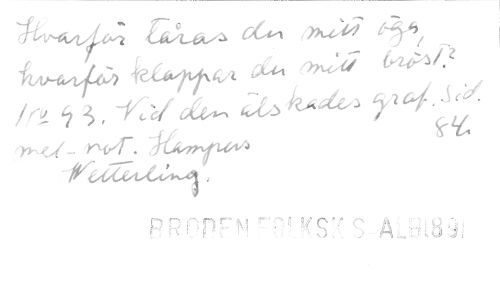 Hvarför tåras du mitt öga,
hvarför klappar du mitt bröst?
No 93. Vid den älskades graf. Sid.
84.
mel-not. Hampus
Wetterling.
BRODEN FOLKSKS-ALB(89)